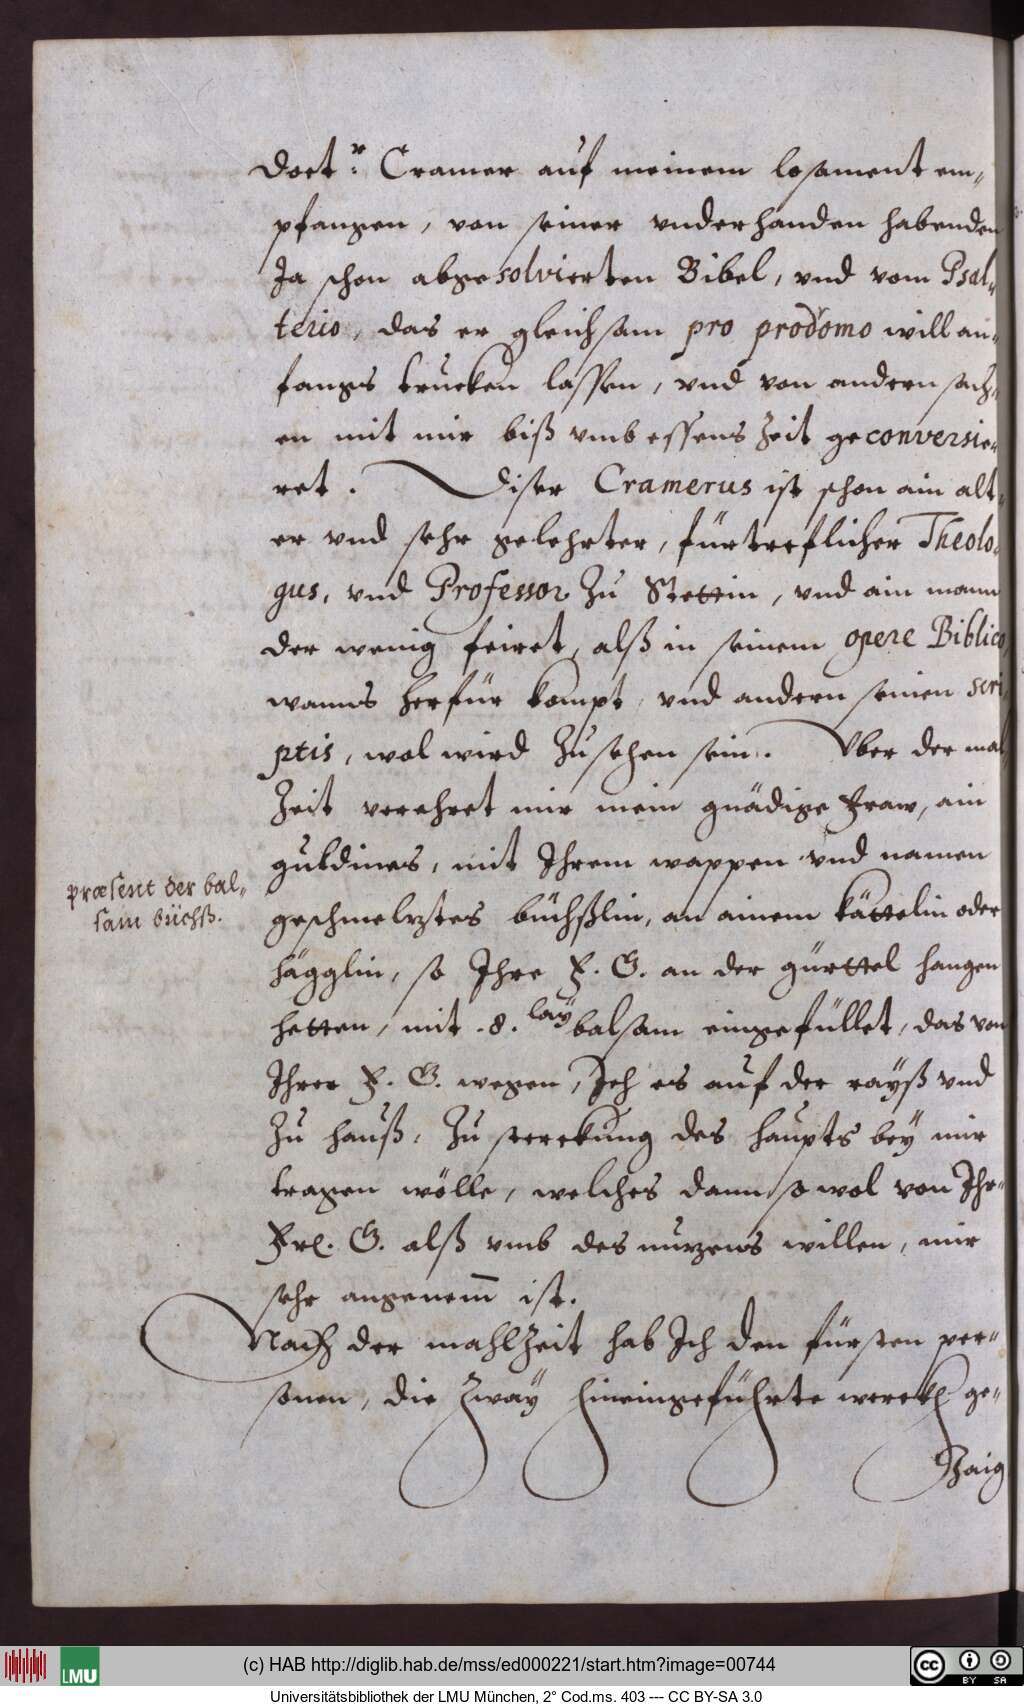 Doct.r Cramer auf meinem losament em„
pfangen, von seiner underhanden habenden
Ja schon abgesolvierten Bibel, und vom Psal„
terio, das er gleichsam pro prodomo will an„
fangs trucken lassen, und von andern sach„
en mit mir biß umb essens Zeit geconversie„
ret. Diser Cramerus ist schon ain alt„
er und sehr gelehrter, fürtreflicher Theolo„
gus, und Professor Zu Stettin, und ain mann
der wenig feiret, alß in seinem opere Biblico,
wanns herfür kompt, und andern seinen scri„
ptis, wol wird Zusehen sein. Uber der mal„
Zeit verehret mir mein gnädige Fraw, ain
guldines, mit Ihrem wappen und namen
præsent der bal„
sam büchß.
geschmelztes büchßlin, an ainem kättelin oder
hägglin, so Ihre F. G. an der gürttel hangen
hetten, mit .8. lay balsam eingefüllet, das von
Ihrer F. G. wegen, Ich es auf der rayß und
Zu hauß, Zu sterckung des haupts bey mir
tragen wölle, welches dann so wol von Ihr„
Frl. G. alß umb des nutzens willen, mir
sehr angenem̄ ist.
Nach der mahlZeit hab Ich den fürsten per„
sonen, die Zway hineingeführte werckh ge„
Zaig
(c) HAB http://diglib.hab.de/mss/ed000221/start.htm?image=00744
LMU
CC BY SA
Universitätsbibliothek der LMU München, 2° Cod.ms. 403 --- CC BY-SA 3.0